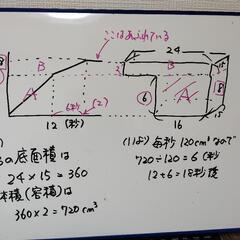 ここはあふれている
B
A
6秒
(2)
12(秒)
24
B
15
3
6
A
18
15
16
の底面積は
24×15=360
体積(容積)は
360×2=720cm³
(1)より 毎秒120cm³なので
720÷120=6(秒)
12+6=18秒後